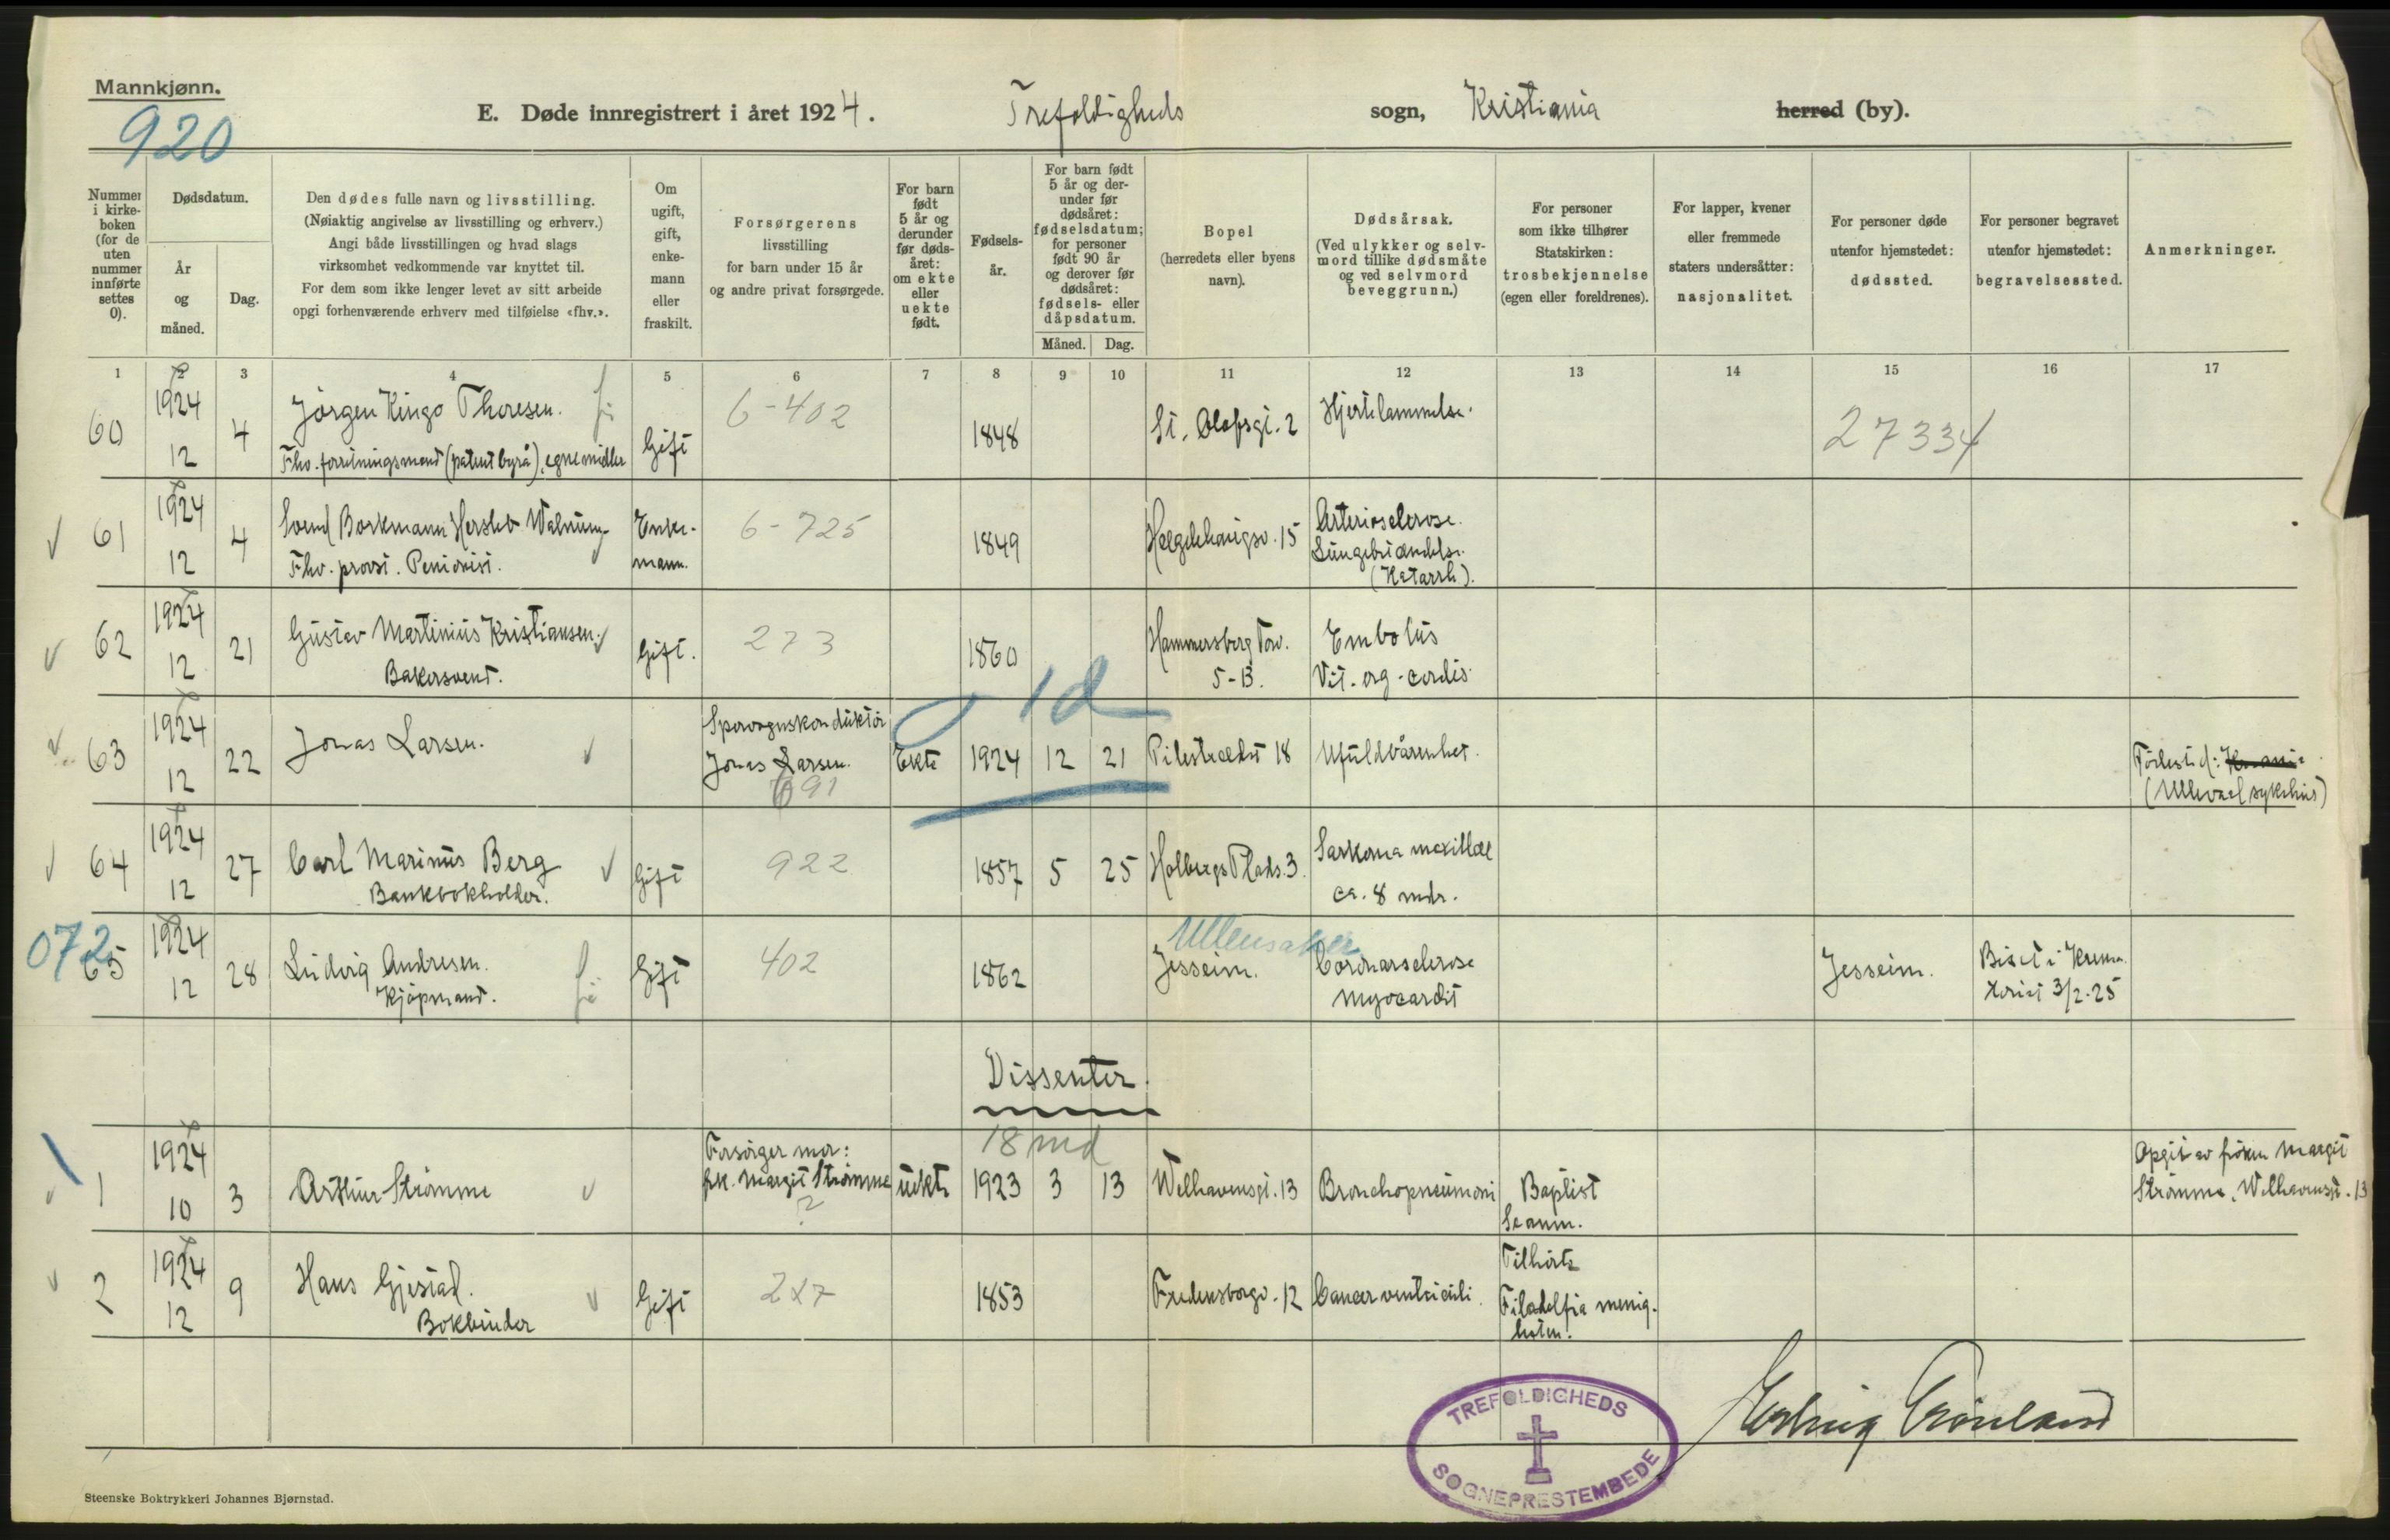 Mannkjønn.
920
E. Døde innregistrert i året 1924. Trefoldigheds sogn, Kristiania herred (by).
Nummer i kirke- boken (for de uten nummer innførte settes 0).
Dødsdatum.
År og måned.
Dag.
Den dødes fulle navn og livsstilling.
(Nøiaktig angivelse av livsstilling og erhverv.)
Angi både livsstillingen og hvad slags
virksomhet vedkommende var knyttet til.
For dem som ikke lenger levet av sitt arbeide
opgi forhenværende erhverv med tilføielse «fhv.».
Om ugift, gift, enke- mann eller fraskilt.
Forsørgerens
livsstilling
for barn under 15 år
og andre privat forsørgede.
For barn født 5 år og derunder før døds- året: om ekte eller uekte født.
Fødsels- år.
For barn født 5 år og der- under før dødsåret: fødselsdatum; for personer født 90 år og derover før dødsåret: fødsels- eller dåpsdatum.
Måned. Dag.
Bopel
(herredets eller byens
navn).
Dødsårsak.
(Ved ulykker og selv-
mord tillike dødsmåte
og ved selvmord
beveggrunn.)
For personer
som ikke tilhører
Statskirken:
trosbekjennelse
(egen eller foreldrenes).
For lapper, kvener
eller fremmede
staters undersåtter:
nasjonalitet.
For personer døde
utenfor hjemstedet:
dødssted.
For personer begravet
utenfor hjemstedet:
begravelsessted.
Anmerkninger.
1 2 3 4 5 6 7 8 9 10 11 12 13 14 15 16 17
60 1924 12 4 Jörgen Kingo Thoresen. Gift 6-402 1848 St. Olafsgt. 2 Hjertelammelse. 27334
Fhv. forretningsmand (patentbyrå), egne midler
61 1924 12 4 Svend Borkmann Hersleb Walnum Enke- mann. 6-725 1849 Hægdehaugsv. 15 Arteriosclerose.
Fhv. provst. Pensionist. Lungebetændelse.
(Katarrh).
62 1924 12 21 Gustav Martinius Kristiansen. Gift. 273 1860 Hammersborg Torv. 5-B. Embolus
Bakersvend. Vit. org. cordis
1 d
63 1924 12 22 Jonas Larsen. Sporvognskonduktör
Jonas Larsen. Ekte 1924 12 21 Pilestrædet 18 Ufuldbårenhet. Födested:
691 (Ullevaal sykehus)
64 1924 12 27 Carl Marinus Berg Gift 922 1857 5 25 Holbergs Plads. 3. Sarkoma maxillae
Bankbokholder. ca. 8 mdr.
072
65 1924 12 28 Ludvig Andresen. Gift 402 1862 Ullensaker Jesseim. Coronarsclerose Jesseim. Biset i Krema-
Kjöpmand. Myocardit toriet 3/2-25
Dissenter.
18 md
1 1924 10 3 Arthur Strömme Forsörger mor:
frk. Margit Strömme uekte 1923 3 13 Welhavensgt. 13 Bronchopneumoni Baptist
samm. Opgit av fröken Margit
Strömme, Welhavensgt. 13
?
2 1924 12 9 Hans Gjestad. Gift 227 1853 Fredensborgv. 12 Cancer ventriculi. Tilhörte
Bokbinder Filadelfia menig-
heten.
TREFOLDIGHEDS
SOGNEPRESTEMBEDE
Steenske Boktrykkeri Johannes Bjørnstad.